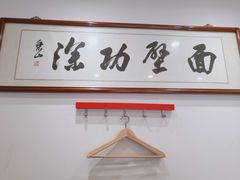 面壁功深